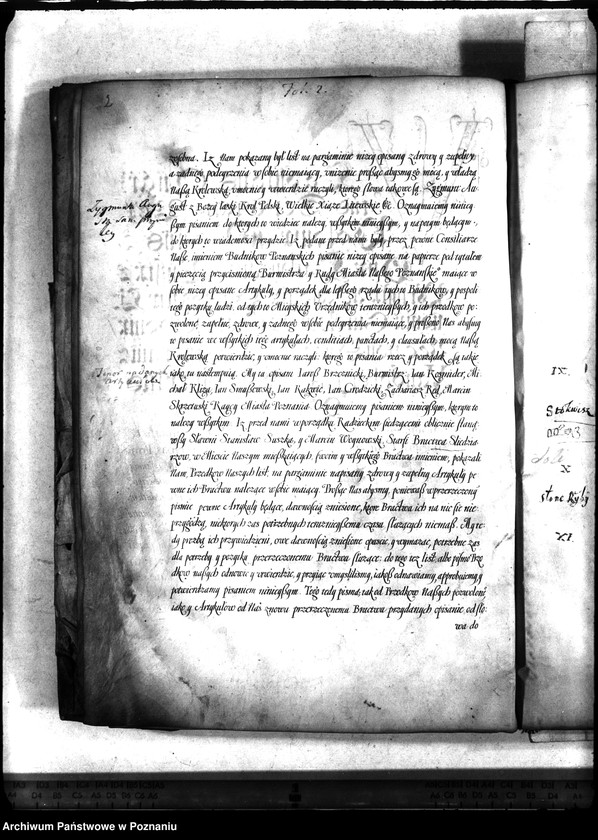 2
Fol. 2.
Zygmunt Augu
zosobna. Iż Nam pokazany był list na pargieminie niżey opisany zdrowy y zupełny,
a żadnego podeyrzenia w sobie niemaiący, vniżenie prosząc abysmy go mocą, y władzą
Naszą Krolewską, vmocnić y vtwierdzić raczyli, ktorego słowa takowe są. Zygmunt Au-
gust z Bożey łaski Krol Polski, Wielkie Xiąże Litewskie &c. Oznaymuiemy niniey-
szym pisaniem do ktorych to wiedzieć należy, wszytkim ninieyszym, y napotym będącym,
do ktorych to wiadomości przydzie. Iż podany przed nami były, przez pewne Consiliarze
Nasze, imieniem Budnikow Poznanskich pisanie niżey opisane na papierze pod tytułem
y pieczęcią przyciśnioną Burmistrza y Rady Miasta Naszego Poznanskie^o maiące w
sobie niżey opisane Artykuły, y porządek dla lepszego rządu tych to Budnikow, y pospoli
tego pożytku ludzi, od tych to Mieyskich Vrzędnikow teraznieyszych, y ich przodkow po-
zwolone zupełne, zdrowe, y żadnego w sobie podeyrzenia niemaiące, y proszono Nas abysmy
to pisanie we wszytkich tego artykułach, conditiach, punctach, y clausulach, mocą Naszą
Krolewską potwierdzić, y vmocnić raczyli: ktorego to pisania rzecz y porządek są takie
iako tu następuią. My tu opisani Iarosz Brzeznicki, Burmistrz, Ian Rożnider, Mi
chał Kliża, Ian Smaszewski, Ian Kakwic, Ian Grodzicki, Zachariasz Red, Marcin
Skrzetuski Raycy Miasta Poznania Oznaymuiemy pisaniem ninieyszym, ktorym to
należy wszytkim. Iż przed nami w porządku Radzieckim siedzącemi oblicznie staną-
wszy Sławni Stanisław Suszka, y Marcin Woynowski, Starsi Bractwa Studzia
rzow, w Mieście Naszym mieszkaiących, swoim y wszytkiego Bractwa imieniem, pokazali
Nam, Przodkow Naszych list, na pargieminie napisany zdrowy y zupełny Artykuły pe
wne ich Bractwu należące w sobie maiący. Prosząc Nas abysmy, ponieważ w przerzeczonym
pismie pewne Artykuły będące, dawnością zniesione, ktore Bractwu ich na nic sie nie
przygodzą, niektorych zaś potrzebnych teraznieyszemu czasu służących niemasz. My te
dy prozbą ich przywiedzieni, owe dawnością zniesione opuścić, y wymazać, potrzebne zaś
dla potrzeby y pożytku przerzeczonemu Bractwu służące: do tego też list, albo pismo Prze
dkow naszych odnowić y vtwierdzić, y przyiąć vmyslilismy, iakosz odnawiamy, approbuiemy, y
potwierdzamy pisaniem ninieyszym. Tego tedy pisma, tak od Przodkow Naszych pozwolone^o
iako y Artykułow od Nas znowu przerzeczonemu Bractwu przydanych opisanie, od sło
wa do
IX.
X
XI.